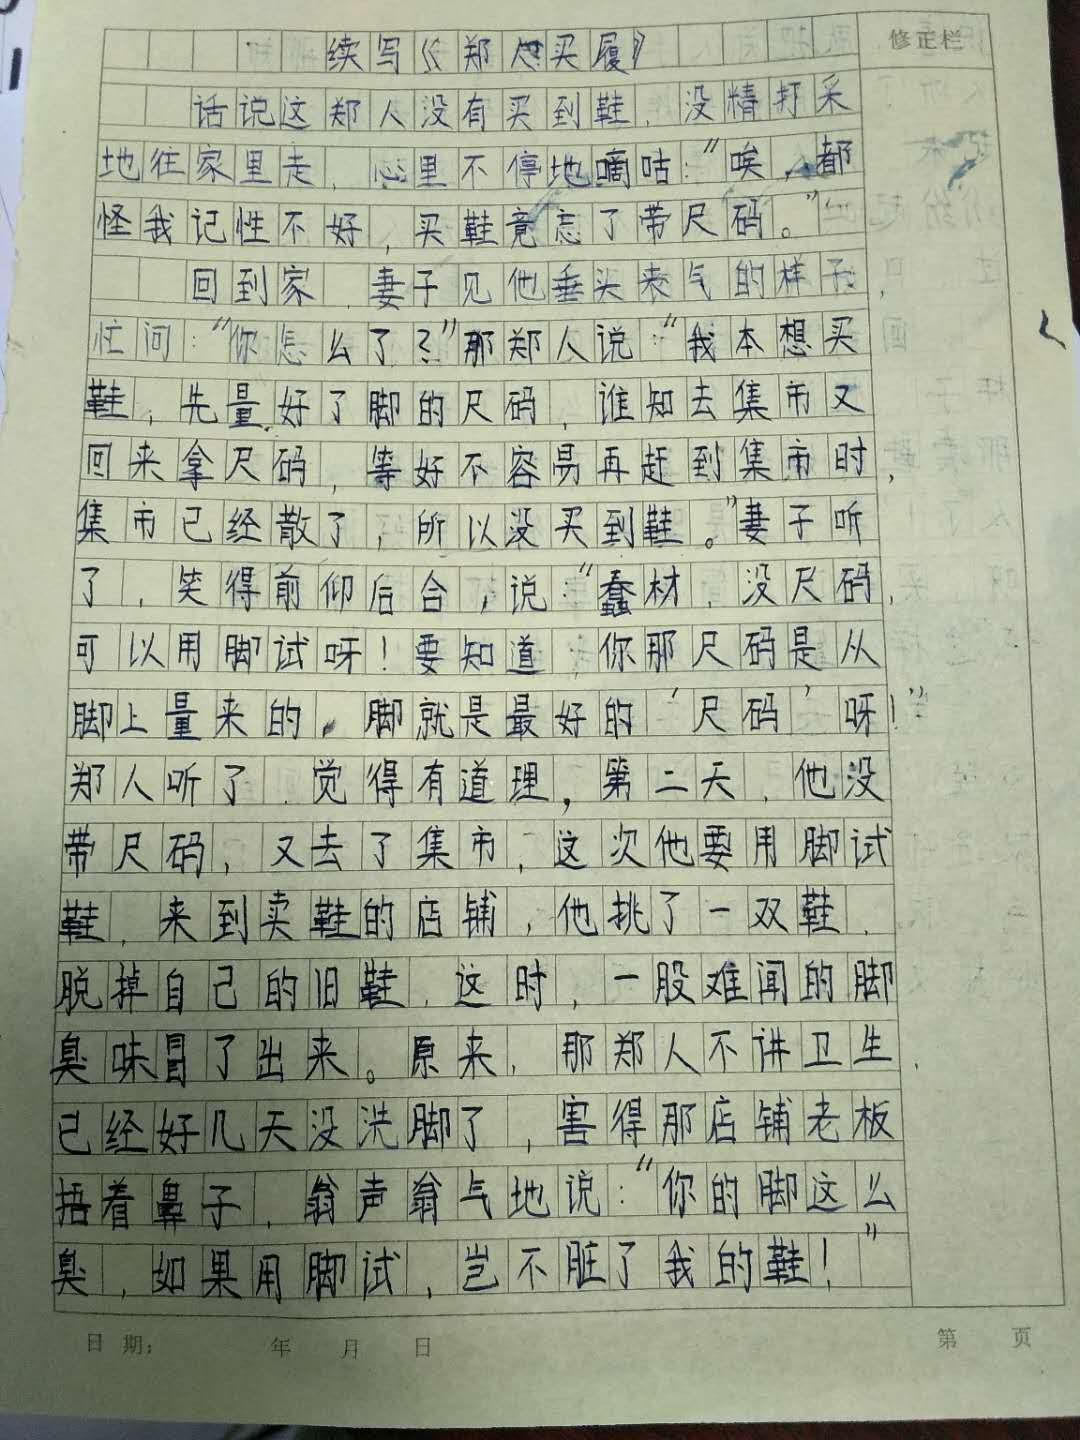 续写《郑人买履》
修正栏
话说这郑人没有买到鞋，没精打采
地往家里走，心里不停地嘀咕：“唉，都
怪我记性不好，买鞋竟忘了带尺码。”
回到家，妻子见他垂头丧气的样子，
忙问：“你怎么了？”那郑人说：“我本想买
鞋，先量好了脚的尺码，谁知去集市又
回来拿尺码，等好不容易再赶到集市时，
集市已经散了，所以没买到鞋。”妻子听
了，笑得前仰后合，说：“蠢材，没尺码，
可以用脚试呀！要知道，你那尺码是从
脚上量来的，脚就是最好的‘尺码’呀！”
郑人听了，觉得有道理，第二天，他没
带尺码，又去了集市，这次他要用脚试
鞋，来到卖鞋的店铺，他挑了一双鞋，
脱掉自己的旧鞋，这时，一股难闻的脚
臭味冒了出来。原来，那郑人不讲卫生，
已经好几天没洗脚了，害得那店铺老板
捂着鼻子，翁声翁气地说：“你的脚这么
臭，如果用脚试，岂不脏了我的鞋！”
日期： 年 月 日
第 页